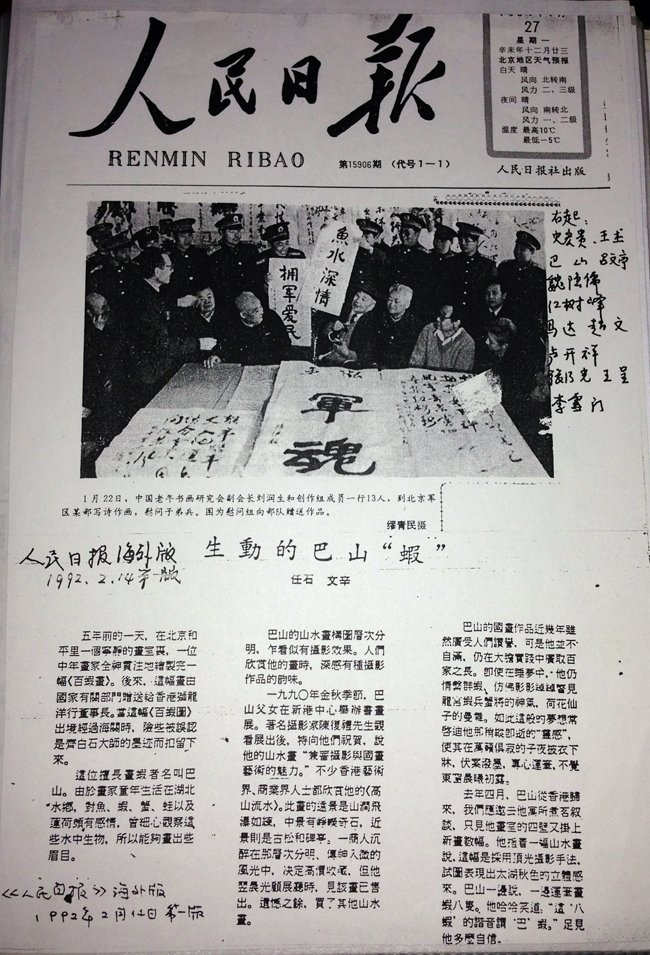 人民日报
RENMIN RIBAO
第15906期 (代号1—1)
27
星期一
辛未年十二月廿三
北京地区天气预报
白天 晴
风向 北转南
风力 二、三级
夜间 晴
风向 南转北
风力 一、二级
温度 最高10℃
最低－5℃
人民日报社出版
魚水深情
拥军爱民
軍魂
右起：
巴山
江树峰
马达 赵文
卢开祥
王呈
1月22日，中国老年书画研究会副会长刘润生和创作组成员一行13人，到北京军
区某部写诗作画，慰问子弟兵。图为慰问组向部队赠送作品。
缪青民摄
人民日报海外版
1992.2.14第一版
生動的巴山“蝦”
任石 文辛
五年前的一天，在北京和
平里一個寧靜的畫室裏，一位
中年畫家全神貫注地繪製完一
幅《百蝦畫》。後來，這幅畫由
國家有關部門贈送給香港獅龍
洋行董事長。當這幅《百蝦圖》
出境經過海關時，險些被誤認
是齊白石大師的墨迹而扣留下
來。
這位擅長畫蝦著名叫巴
山。由於畫家童年生活在湖北
水鄉，對魚、蝦、蟹、蛙以及
蓮荷頗有感情，曾細心觀察這
些水中生物，所以能夠畫出些
眉目。
巴山的山水畫構圖層次分
明，乍看似有攝影效果。人們
欣賞他的畫時，深感有種攝影
作品的韵味。
一九九〇年金秋季節，巴
山父女在新港中心舉辦書畫
展。著名攝影家陳復禮先生觀
看展出後，特向他們祝賀，說
他的山水畫“兼蓄攝影與國畫
藝術的魅力。”不少香港藝術
界、商業界人士都欣賞他的《高
山流水》。此畫的遠景是山澗飛
瀑如練，中景有崢嶸奇石，近
景則是古松和碑亭。一商人沉
醉在那層次分明、傳神入微的
風光中，决定高價收藏，但他
翌晨光顧展廳時，見該畫已售
出。遺憾之餘，買了其他山水
畫。
巴山的國畫作品近幾年雖
然廣受人們讚譽，可是他並不
自滿，仍在大膽實踐中廣取百
家之長。即使在睡夢中，他仍
情繫群蝦，仿佛影影綽綽瞥見
龍宮蝦兵蟹將的神氣，荷花仙
子的曼聲。如此這般的夢想常
啓迪他那稍縱即逝的“靈感”，
使其在萬籟俱寂的子夜披衣下
牀，伏案潑墨，專心運筆，不覺
東窗晨曦初露。
去年四月，巴山從香港歸
來，我們應邀去他寓所煮茗叙
談，只見他畫室的四壁又掛上
新畫數幅。他指着一幅山水畫
說，這幅是採用頂光攝影手法，
試圖表現出太湖秋色的立體感
來。巴山一邊說，一邊運筆畫
蝦八隻。他哈哈笑道：“這‘八
蝦’的諧音謂‘巴’蝦。”足見
他多麼自信。
《人民日报》海外版
1992年2月14日第一版